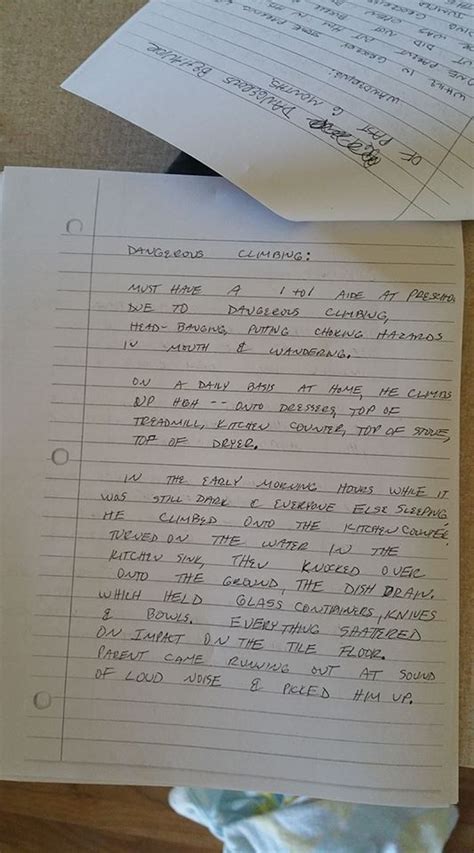 WHILE IN GROCERY
WANDERING:
OF PAST 6 MONTHS
DANGEROUS BEHAVIOR
DANGEROUS CLIMBING:
MUST HAVE A 1 TO 1 AIDE AT PRESCHOOL
DUE TO DANGEROUS CLIMBING,
HEAD-BANGING, PUTING CHOKING HAZARDS
IN MOUTH & WANDERING.
ON A DAILY BASIS AT HOME, HE CLIMBS
UP HIGH -- ONTO DRESSERS, TOP OF
TREADMILL, KITCHEN COUNTER, TOP OF STOVE,
TOP OF DRYER.
IN THE EARLY MORNING HOURS WHILE IT
WAS STILL DARK & EVERYONE ELSE SLEEPING
HE CLIMBED ONTO THE KITCHEN COUNTER
TURNED ON THE WATER IN THE
KITCHEN SINK, THEN KNOCKED OVER
ONTO THE GROUND, THE DISH DRAIN.
WHICH HELD GLASS CONTAINERS, KNIVES
& BOWLS. EVERYTHING SHATTERED
ON IMPACT ON THE TILE FLOOR.
PARENT CAME RUNNING OUT AT SOUND
OF LOUD NOISE & PICKED HIM UP.